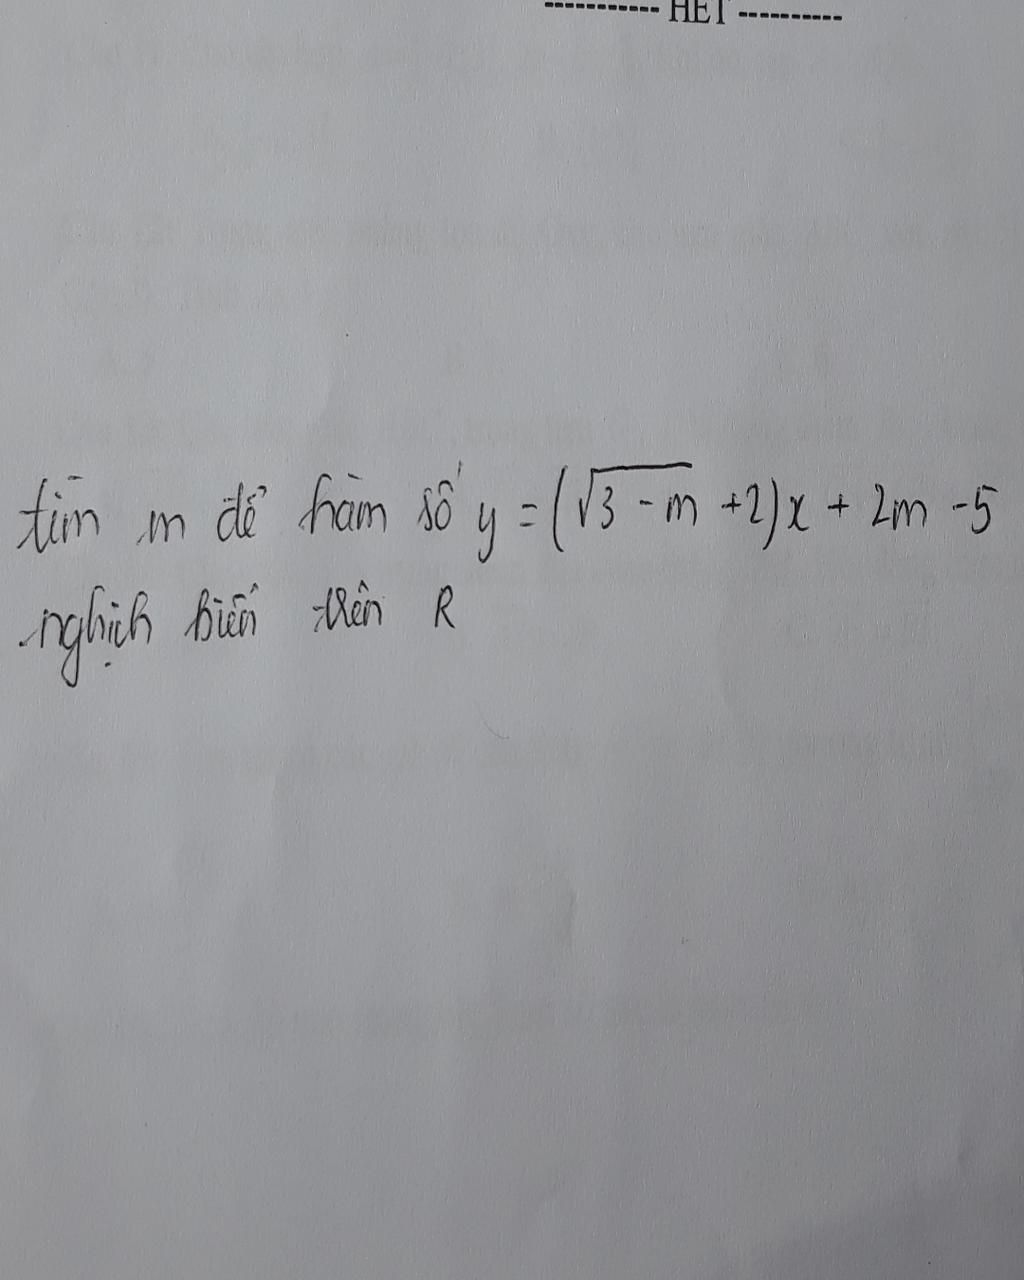 ----------- HẾT ----------
tìm m để hàm số y = (√3 - m + 2)x + 2m - 5
nghịch biến trên R